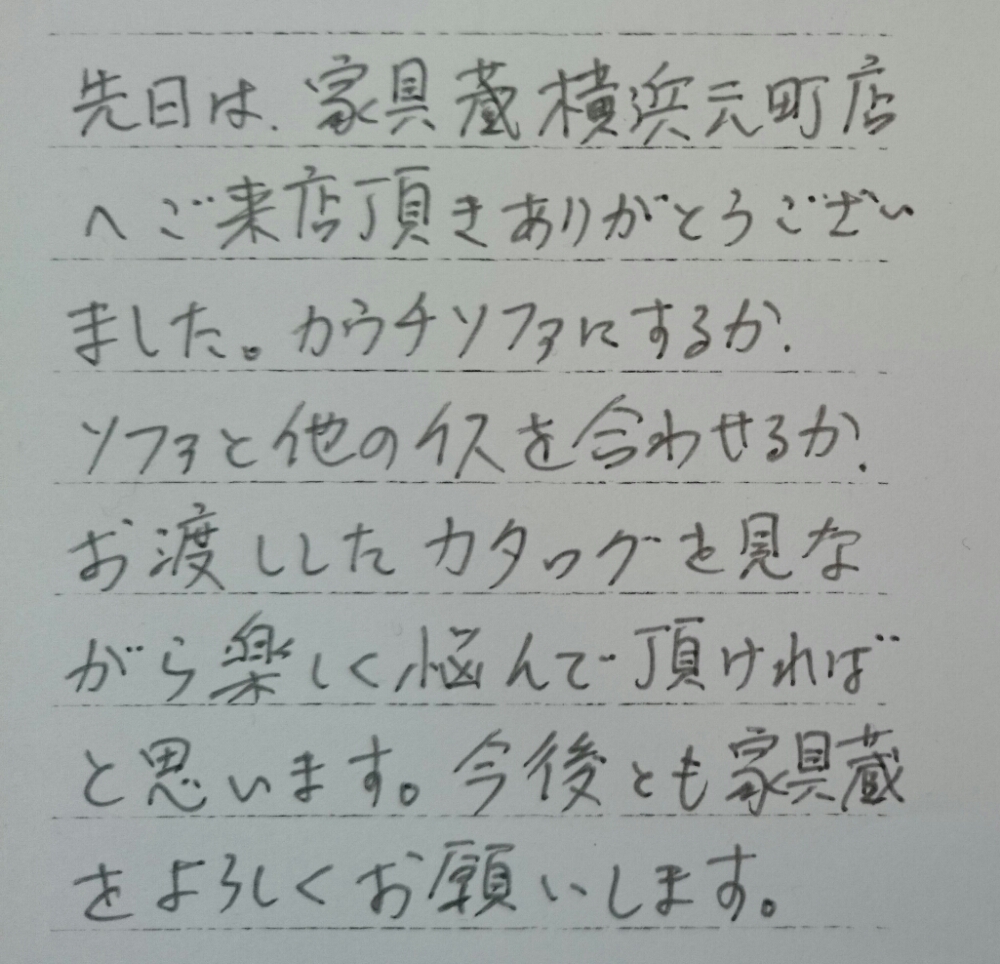 先日は、家具蔵横浜元町店
へご来店頂きありがとうござい
ました。カウチソファにするか、
ソファと他のイスを合わせるか、
お渡ししたカタログを見な
がら楽しく悩んで頂ければ
と思います。今後とも家具蔵
をよろしくお願いします。